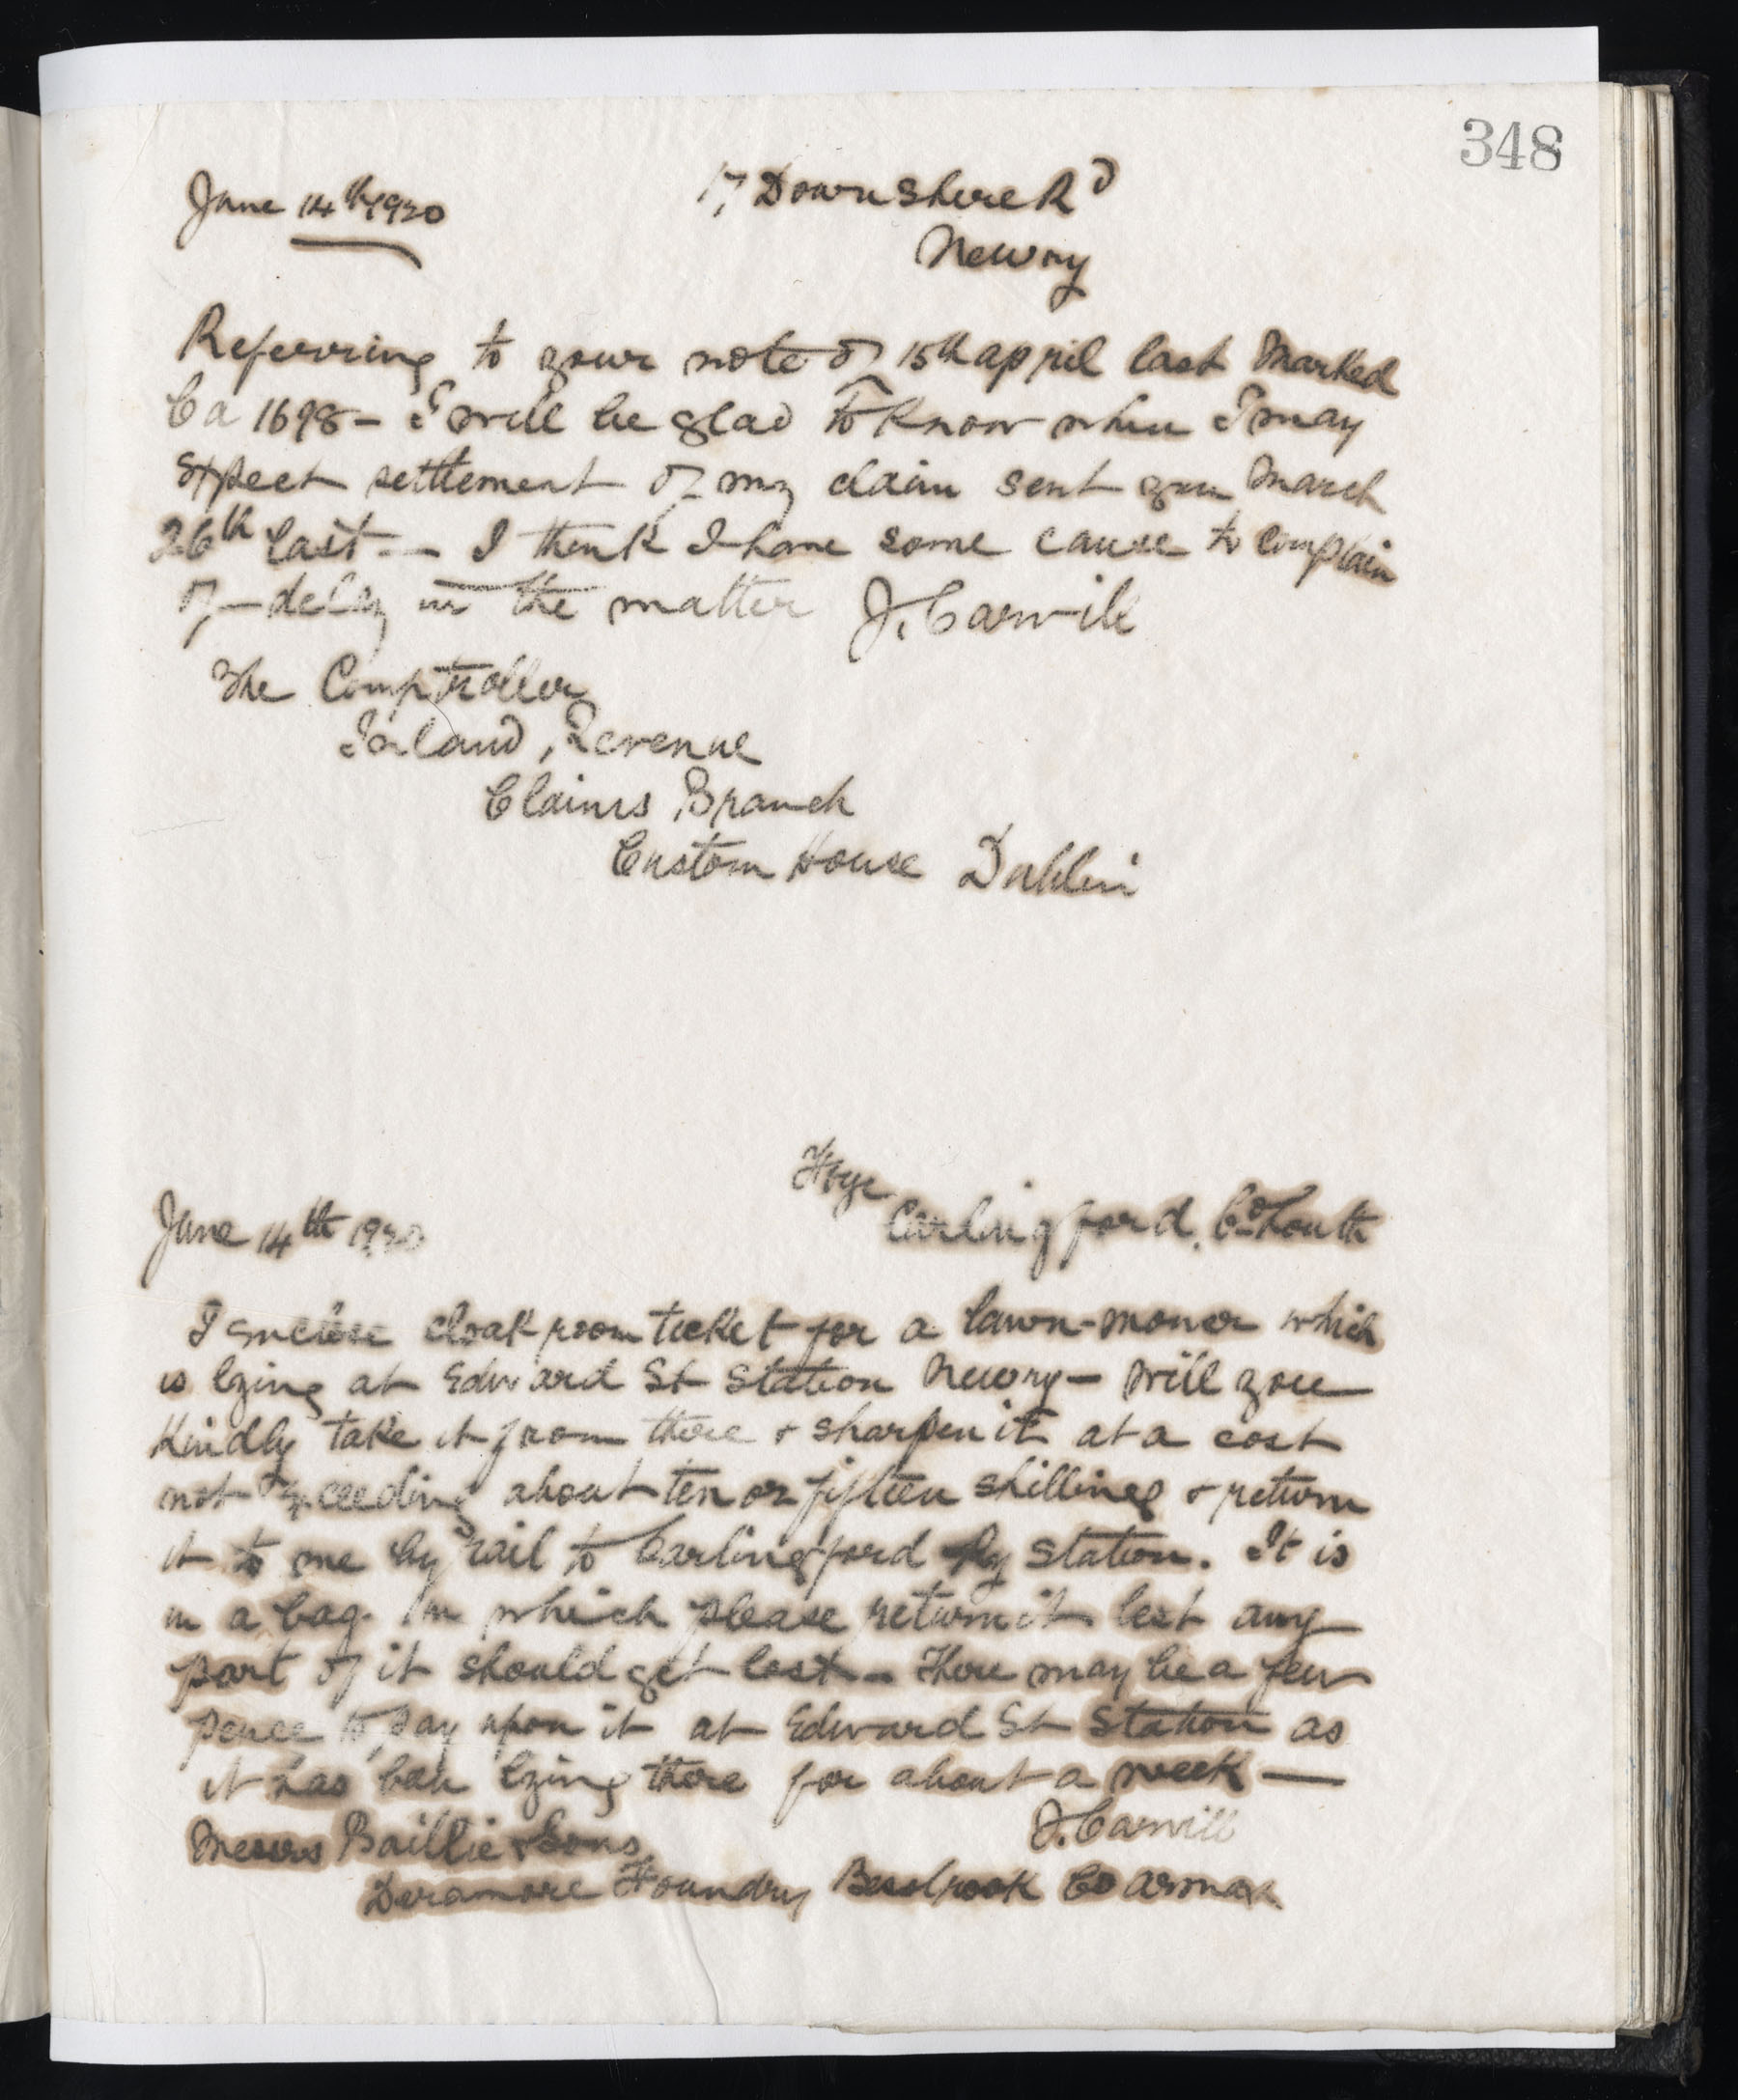 348
June 14th 1920
17 Downshire Rd
Newry
Referring to your note of 15th april last Marked
Ca 1698 - I will be glad to know when I may
expect settlement of my claim sent you March
26th last - I think I have some cause to complain
of - delay in the matter J. Carvill
The Comptroller
Inland Revenue
Claims Branch
Custom House Dublin
June 14th 1920
Carlingford, Co Louth
I enclose cloak room ticket for a lawn-mower which
is lying at Edward St Station Newry - Will you
Kindly take it from there & sharpen it at a cost
not exceeding about ten or fifteen shillings & return
it to me by rail to Carlingford Ry Station. It is
in a bag in which please return it lest any
part of it should get lost - There may be a few
pence to pay upon it at Edward St Station as
it has been lying there for about a week -
J. Carvill
Messrs Baillie & Sons
Deramore Foundry Bessbrook Co Armagh